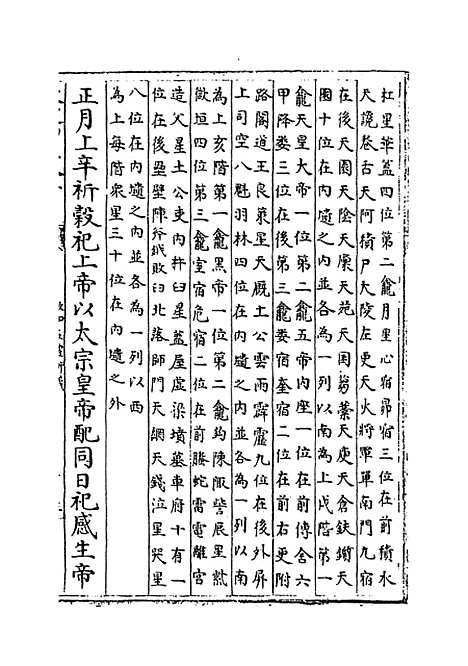 杠星華蓋四位第二龕月星心宿昴宿三位在前積水
天讒卷舌天阿積尸大陵左更天大將軍軍南門九宿
在後天園天陰天廪天苑天囷芻藁天庾天倉鈇鑕天
圂十位在内壝之内並各為一列以南為上戌階第一
龕天皇大帝一位第二龕五帝内座一位在前傳舍六
甲降婁三位在後第三龕婁宿奎宿二位在前右更附
路閣道王良策星天厩土公雲雨霹靂九位在後外屏
土司空八魁羽林四位在内壝之内並各為一列以南
為上亥階第一龕黒帝一位第二龕鈎陳陬訾辰星㷀
歘垣四位第三龕室宿危宿二位在前螣蛇雷電離宮
造父星土公吏内杵臼星蓋屋虛梁墳墓車府十有一
位在後壘壁陣斧鉞敗臼北落師門天綱天錢泣星哭星
八位在内壝之内並各為一列以西
為上每階衆星三十位在内壝之外
正月上辛祈穀祀上帝以太宗皇帝配同日祀感生帝